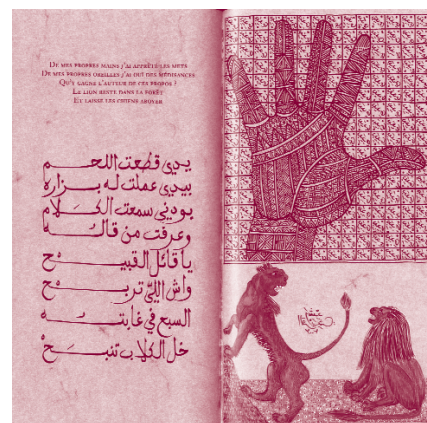 De mes propres mains j'ai apprêté les mets
De mes propres oreilles j'ai ouï des médisances
Qu'y gagne l'auteur de ces propos ?
Le lion reste dans sa forêt
Et laisse les chiens aboyer
يديّ قطعت اللحم
بيديّ عملت له بزاره
بوذني سمعت الكلام
وعرفت من قاله
يا قائل القبيح
واش اللي تربح
السبع في غابته
خل الكلاب تنبح